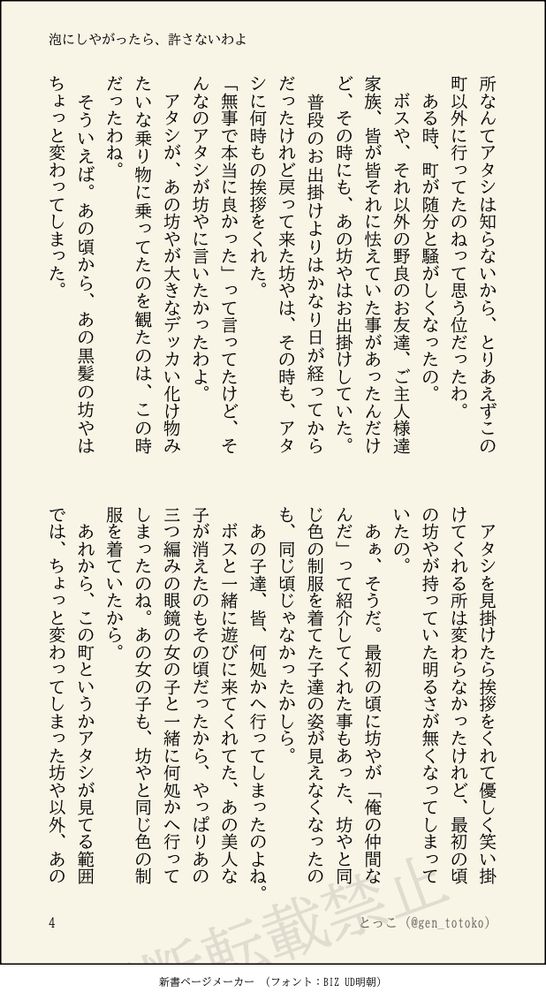 泡にしやがったら、許さないわよ
所なんてアタシは知らないから、とりあえずこの
町以外に行ってたのねって思う位だったわ。
ある時、町が随分と騒がしくなったの。
ボスや、それ以外の野良のお友達、ご主人様達
家族、皆が皆それに怯えていた事があったんだけ
ど、その時にも、あの坊やはお出掛けしていた。
普段のお出掛けよりはかなり日が経ってから
だったけれど戻って来た坊やは、その時も、アタ
シに何時もの挨拶をくれた。
「無事で本当に良かった」って言ってたけど、そ
んなのアタシが坊やに言いたかったわよ。
アタシが、あの坊やが大きなデッカい化け物み
たいな乗り物に乗ってたのを観たのは、この時
だったわね。
そういえば。あの頃から、あの黒髪の坊やは
ちょっと変わってしまった。
アタシを見掛けたら挨拶をくれて優しく笑い掛
けてくれる所は変わらなかったけれど、最初の頃
の坊やが持っていた明るさが無くなってしまって
いたの。
あぁ、そうだ。最初の頃に坊やが「俺の仲間な
んだ」って紹介してくれた事もあった、坊やと同
じ色の制服を着てた子達の姿が見えなくなったの
も、同じ頃じゃなかったかしら。
あの子達、皆、何処かへ行ってしまったのよね。
ボスと一緒に遊びに来てくれてた、あの美人な
子が消えたのもその頃だったから、やっぱりあの
三つ編みの眼鏡の女の子と一緒に何処かへ行って
しまったのね。あの女の子も、坊やと同じ色の制
服を着ていたから。
あれから、この町というかアタシが見てる範囲
では、ちょっと変わってしまった坊や以外、あの
4
とっこ (@gen_totoko)
断転載禁止
新書ページメーカー (フォント:BIZ UD明朝)